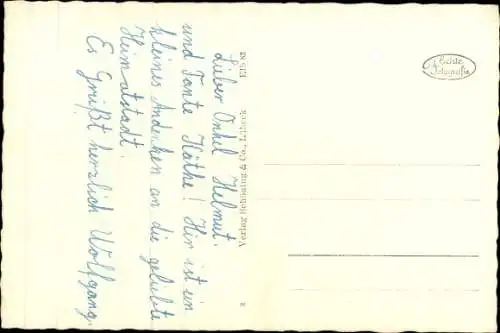 Lieber Onkel Helmut.
und Tante Käthe! Hir ist ein
kleines Andenken an die geliebte
Heimatstadt.
Es Grüßt herzlich Wolfgang.
Verlag Schöning & Co., Lübeck
Echte
Fotografie